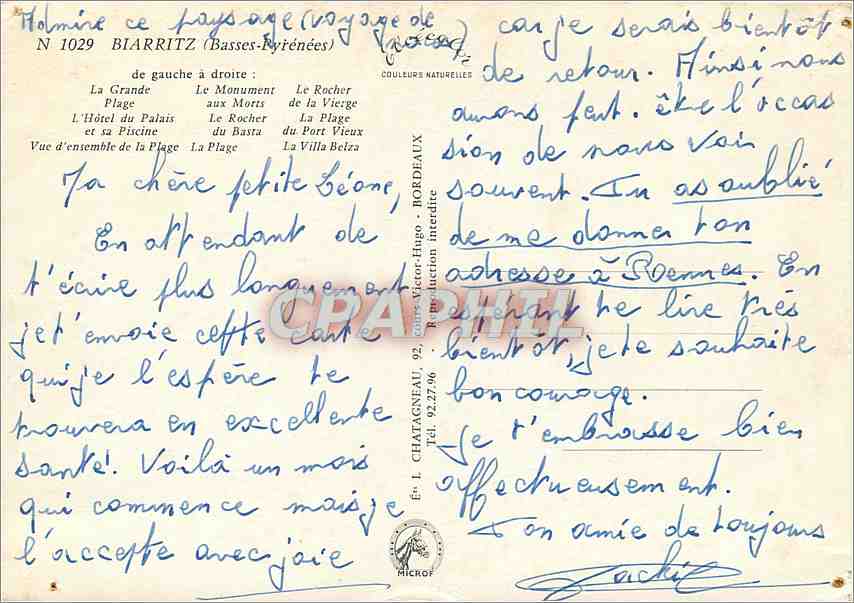 Admire ce paysage (voyage de
noces)
N 1029 BIARRITZ (Basses-Pyrénées)
COULEURS NATURELLES
de gauche à droite :
La Grande Plage
Le Monument aux Morts
Le Rocher de la Vierge
L'Hôtel du Palais et sa Piscine
Le Rocher du Basta
La Plage du Port Vieux
Vue d'ensemble de la Plage
La Plage
La Villa Belza
Ma chère petite Léone,
En attendant de
t'écrire plus longuement
je t'envoie cette carte
qui je l'espère te
trouvera en excellente
santé. Voilà un mois
qui commence mais je
l'accepte avec joie
Éts I. CHATAGNEAU, 92, cours Victor-Hugo - BORDEAUX
Tél. 92.27.96 - Reproduction interdite
MICROF
car je serais bientôt
de retour. Ainsi nous
aurons peut. être l'occas
sion de nous voir
souvent. Tu as oublié
de me donner ton
adresse à Rennes. En
espérant te lire très
bientôt, je te souhaite
bon courage.
Je t'embrasse bien
affectueusement.
Ton amie de toujours
CPAPHIL